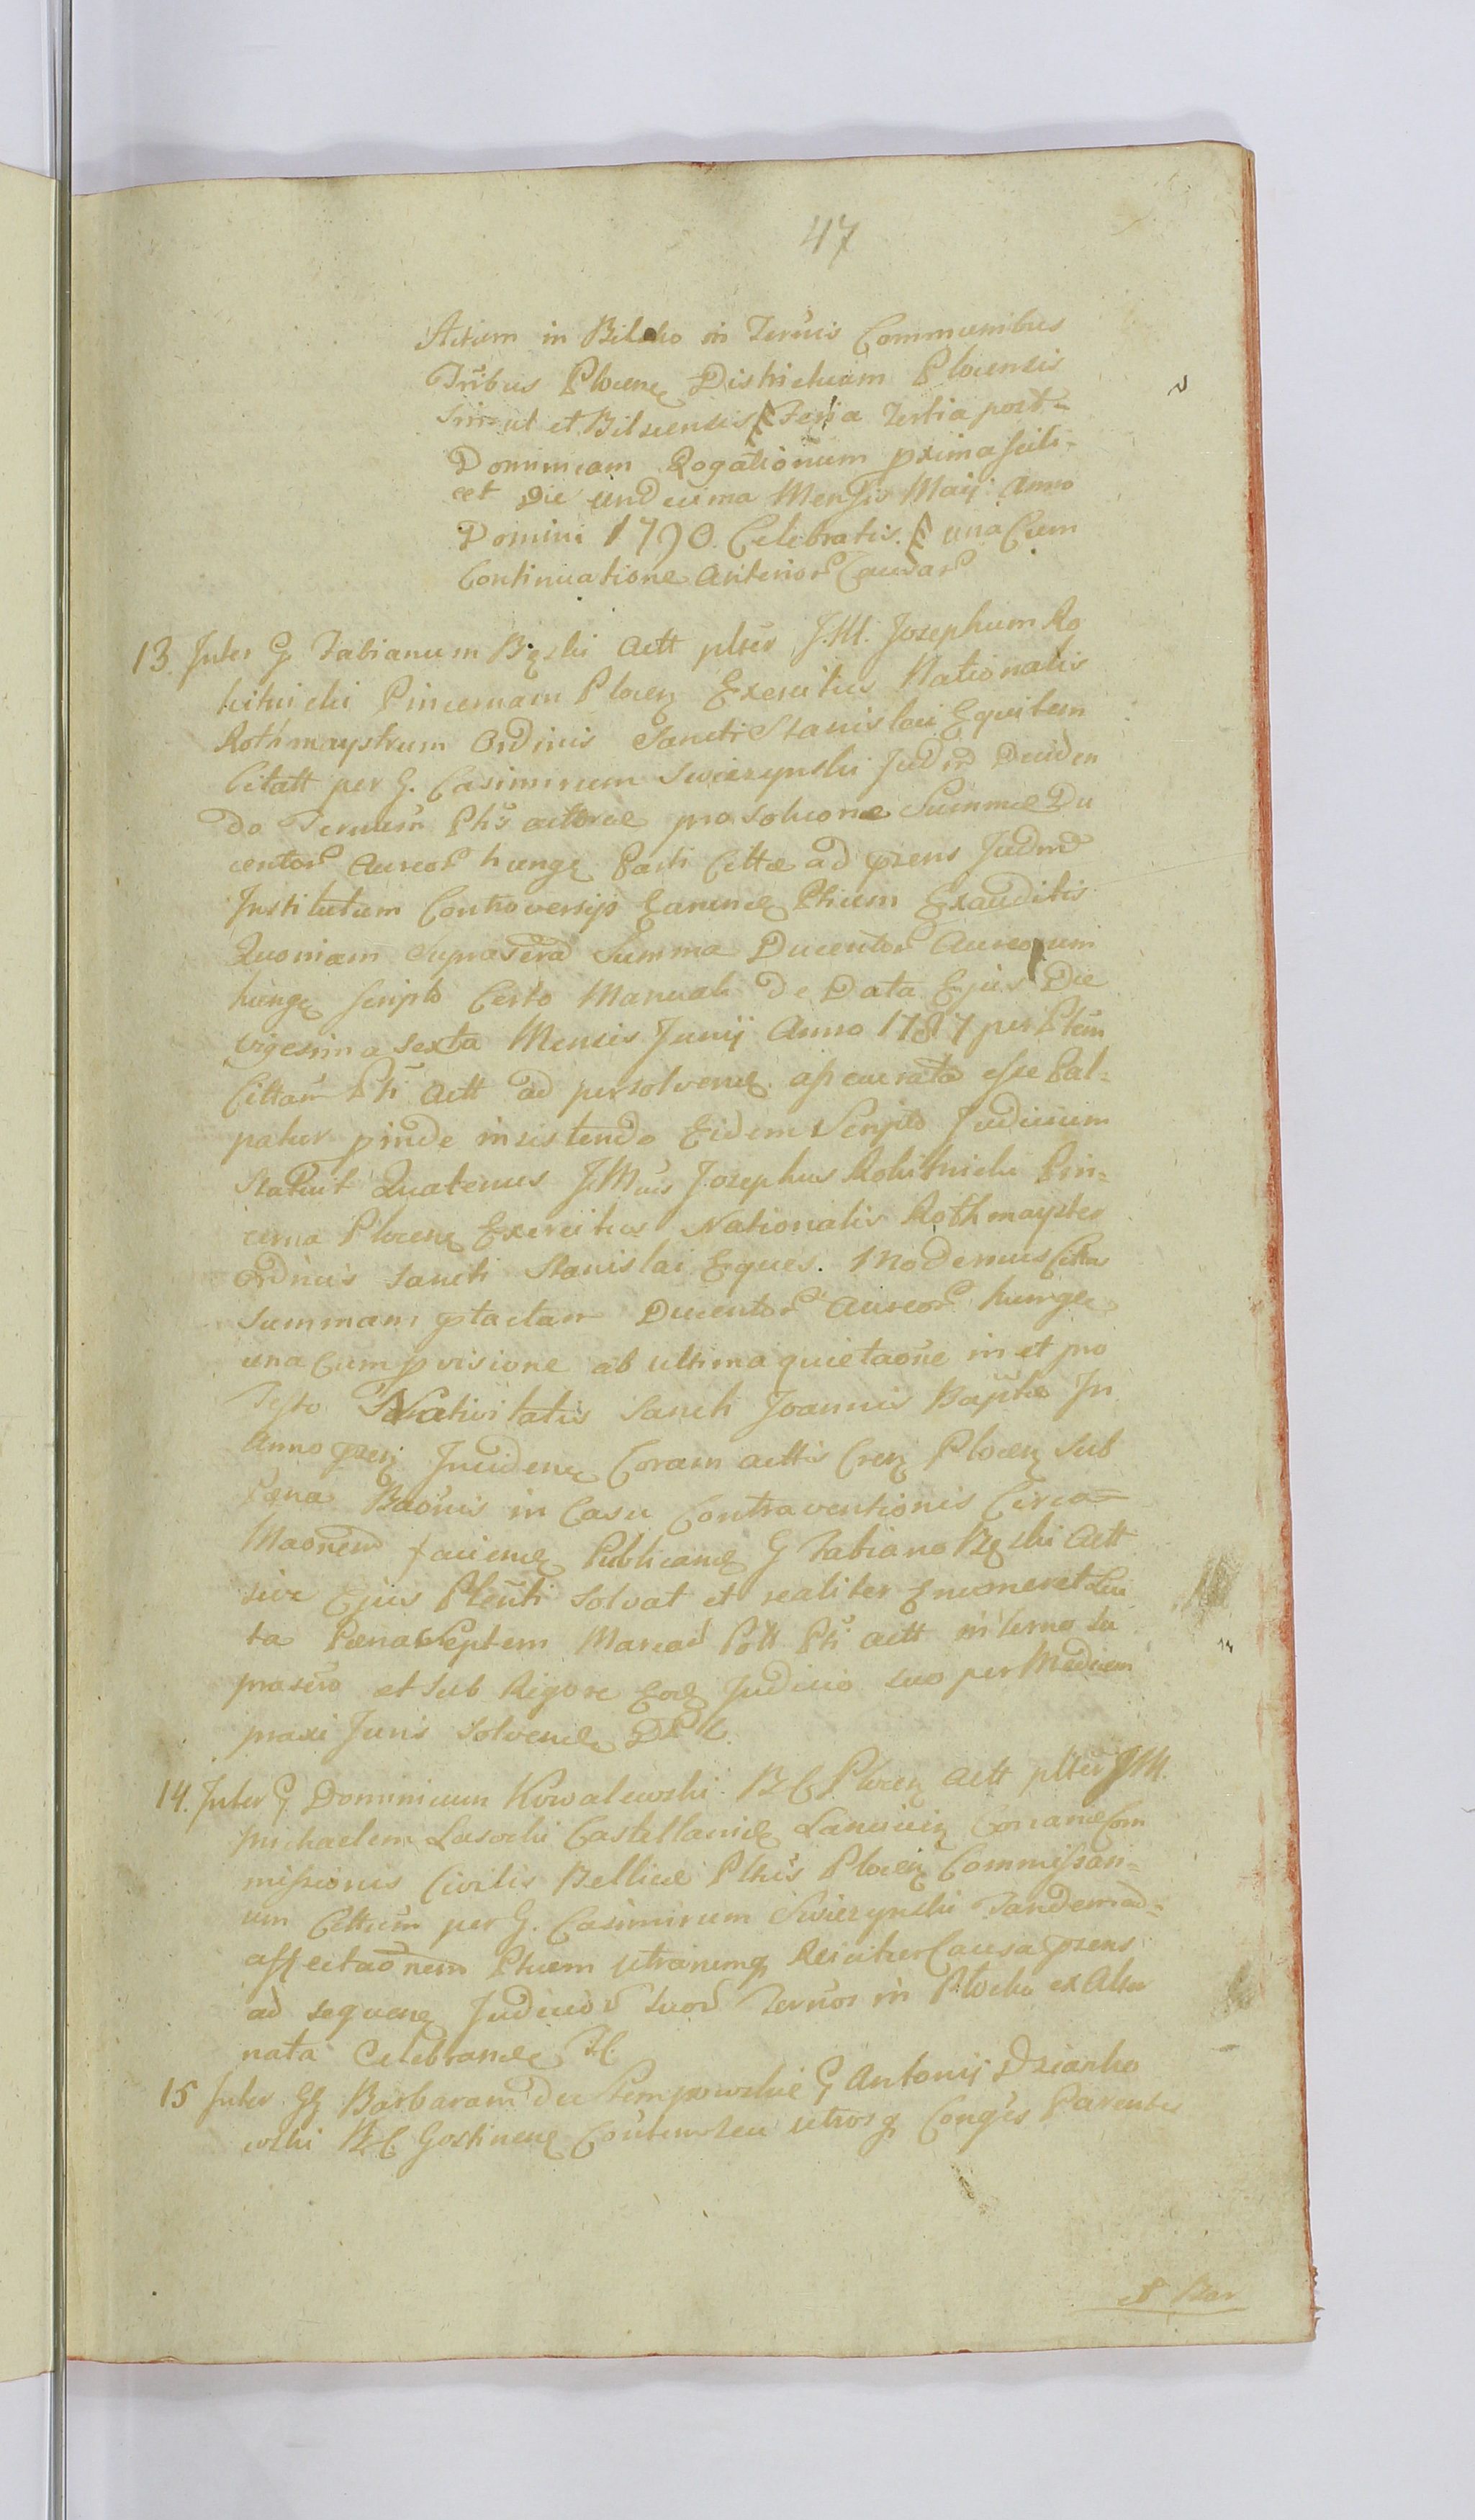 47
Actum in Bielsko in Terīnis Communibus
Tribus Plocen Districtuum Plocensis
Simul et Bilscensis Feria Tertia post-
Dominicam Rogationum pxima scili-
cet Die undecima Mensis Maij Anno
Domini 1790. Celebratis. una Cum
Continuatione Anterior Causar
13. Inter G Fabianum Bęski Actt plter J.M. Josephum Ro
kitnicki Pincernam Plocen Exercitus Nationalis
Rothmaystrum Ordinis Sancti Stanislai Equitem
Citatt per G. Casimirum Swierzynski Judm Deciden
do Termīn Ptis actoreæ pro Solucione Summæ Du
centor Aureor hunge Parti Cittæ ad præns Judm
Institutum Controversijs Earunde Ptium Exauditis
Quoniam Suprascra Summa Ducentor Aureorum
hunge Scripto Certo Manuali De Data Ejus Die
vigesima sexta Mensis Junij Anno 1787 per Ptem
Cittam Pti Actt ad persolvend assecurata esse Pal-
patur pinde insistendo Eidem Scripto Judicium
Statuit Quatenus JMus Josephus Rokitnicki Pin-
cerna Plocen Exercitus Nationalis Rothmayster
Ordinis Sancti Stanislai Eques. Modernus Cittus
Summam ptactam Ducentor Aureor hunge
una Cum pvisione ab ultima quietaōne in et pro
Festo Nativitatis Sancti Joannis Baptæ In
Anno præn Inciden Coram acttis Cren Plocen Sub
Pœna Baōnis in Casu Contraventionis Circa
Maōnem faciend Publicand G Fabiano Bęski Actt
sive Ejus Plenti Solvat et realiter Enumeret Lui
ta Pœna Septem Marcar Poll Pti actt in Terno Su
prascro et Sub Rigore Eod Judicio suo per Medium
praxi Juris Solvend DPL.
14. Inter G Dominicum Kowalewski B C Plocen Actt plter JM.
Michaelem Lasocki Castellanid Lanciciens Com
missionis Civilis Bellicæ Pttus Plocen Commissari-
um Cittum per G. Casimirum Swierzynski Tandem ad-
affectaōnem Ptium utranumq Reicitur Causa præns
ad sequen Judicior suor Termos in Plocko ex Alter
nata Celebrand PL
15 Inter GG Barbaram de Stempowskie G Antonij Dziarko
wski B C Gostinen Consortem seu utrosq Conges Parentes
et Bar